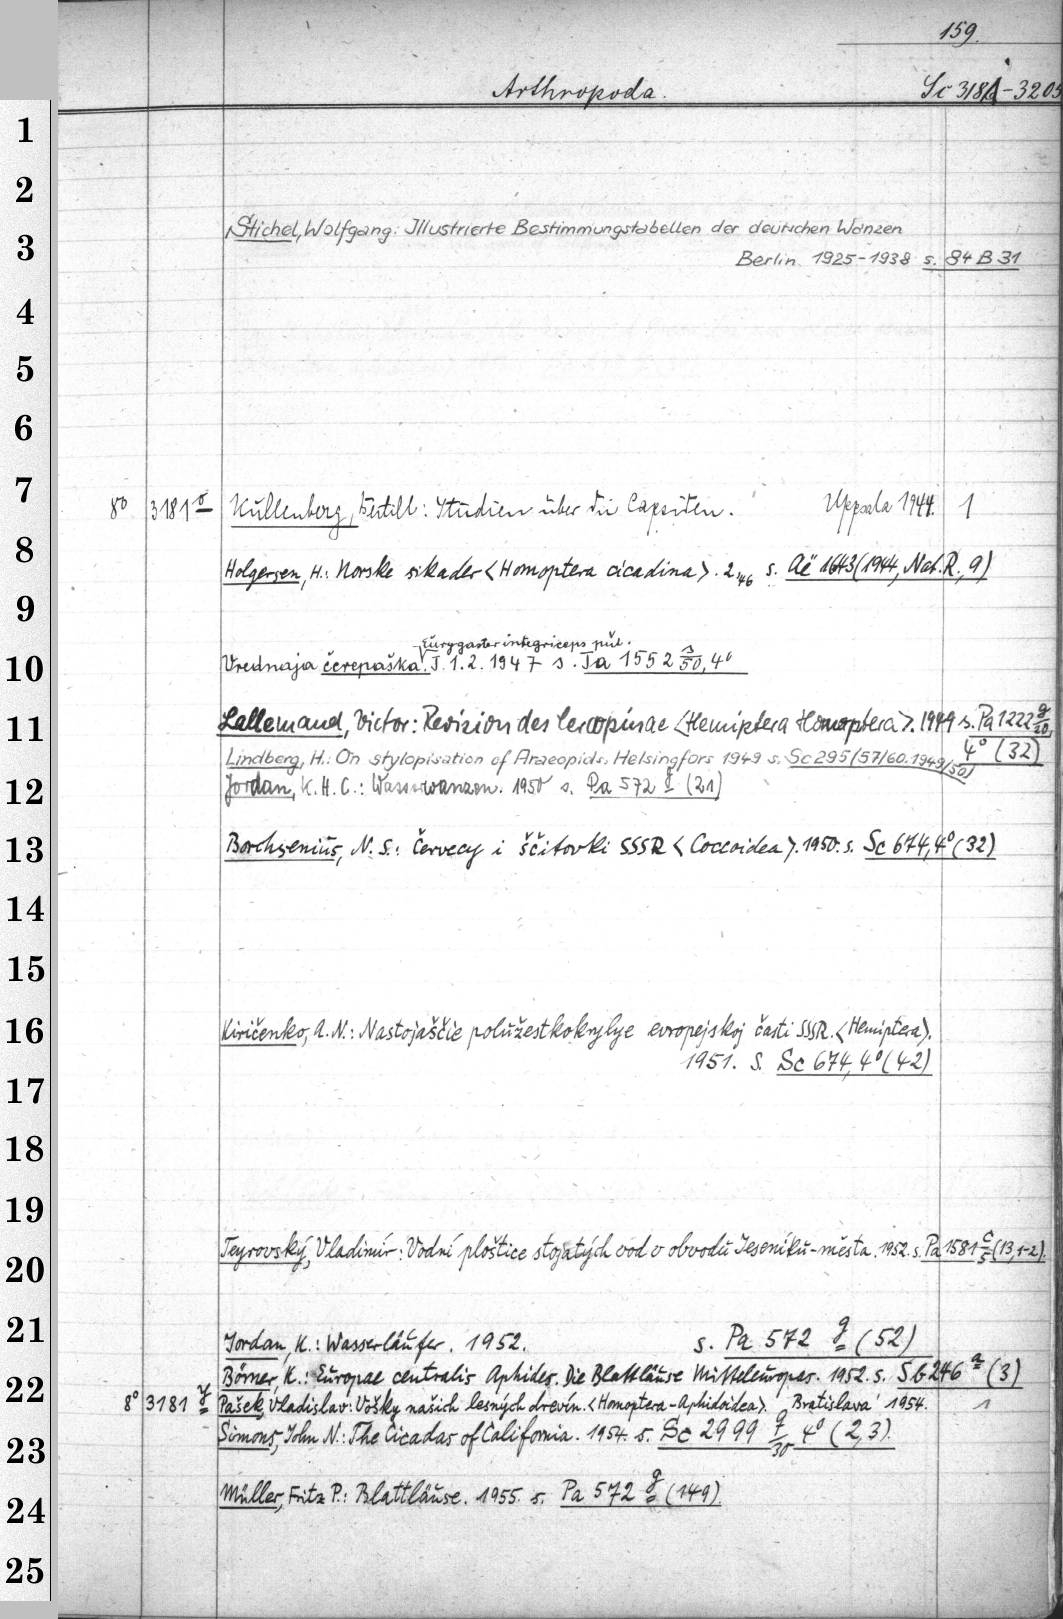 159.
Arthropoda. Sc 3181-3205
1
2
3
4
5
6
7
8
9
10
11
12
13
14
15
16
17
18
19
20
21
22
23
24
25
Stichel, Wolfgang: Illustrierte Bestimmungstabellen der deutschen Wanzen
Berlin 1925-1938 s. 84 B 31
8° 3181 Kullenberg, Bertill: Studien über die Capsiden. Uppsala 1944. 1
Holgersen, H.: Norske sikader <Homoptera cicadina>. 2.'46 s. Aë 1643 (1944, Nat. R., 9)
Eurygaster integriceps put.
Vrednaja čerepaška. T. 1.2. 1947 s. Ta 1552 s/50, 4°
Lallemand, Victor: Revision des Cercopinae <Hemiptera Homoptera>. 1949 s. Pa 1222 g/20,
4° (32)
Lindberg, H.: On stylopisation of Araeopids. Helsingfors 1949 s. Sc 295/57/60.1949/50)
Jordan, K. H. C.: Wasserwanzen. 1950 s. Pa 572 g (21)
Borchsenius, N. S.: Červecy i ščitovki SSSR <Coccoidea>. 1950. s. Sc 674, 4° (32)
Kiričenko, A. N.: Nastojaščie polužestkokrylye evropejskoj časti SSSR. <Hemiptera>.
1951. S. Sc 674, 4° (42)
Teyrovský, Vladimír: Vodní ploštice stojatých vod v obvodu Jeseníku-města. 1952. s. Pa 1581 č/s (13, 1-2).
Jordan, K.: Wasserläufer. 1952. s. Pa 572 g (52)
Börner, K.: Europae centralis Aphides. Die Blattläuse Mitteleuropas. 1952. s. Sb 246 a (3)
8° 3181 y Pašek, Vladislav: Vošky našich lesných drevín. <Homoptera-Aphidoidea>. Bratislava 1954. 1
Simons, John N.: The Cicadas of California. 1954. s. Sc 2999 q/30 4° (2,3).
Müller, Fritz P.: Blattläuse. 1955. s. Pa 572 g (149).